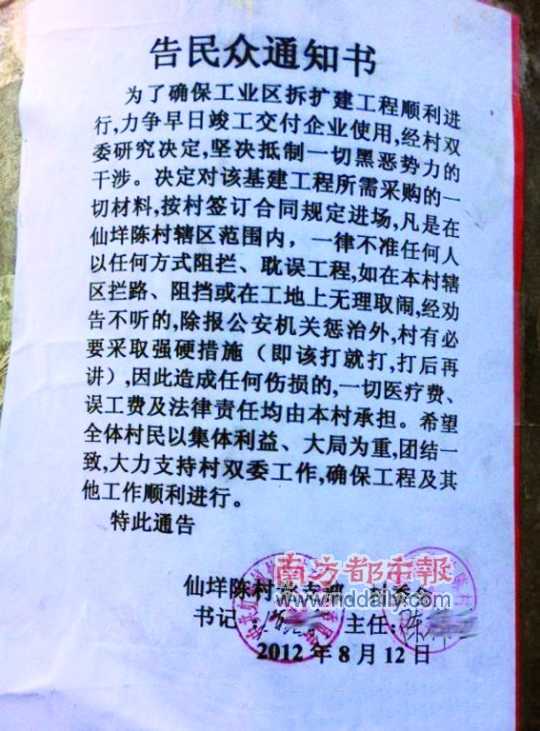 告民众通知书
为了确保工业区拆扩建工程顺利进
行,力争早日竣工交付企业使用,经村双
委研究决定,坚决抵制一切黑恶势力的
干涉。决定对该基建工程所需采购的一
切材料,按村签订合同规定进场,凡是在
仙垟陈村辖区范围内,一律不准任何人
以任何方式阻拦、耽误工程,如在本村辖
区拦路、阻挡或在工地上无理取闹,经劝
告不听的,除报公安机关惩治外,村有必
要采取强硬措施（即该打就打,打后再
讲）,因此造成任何伤损的,一切医疗费、
误工费及法律责任均由本村承担。希望
全体村民以集体利益、大局为重,团结一
致,大力支持村双委工作,确保工程及其
他工作顺利进行。
特此通告
南方都市报
仙垟陈村 村委会
www.nddaily.com
书记: 主任:陈
2012年8月12日